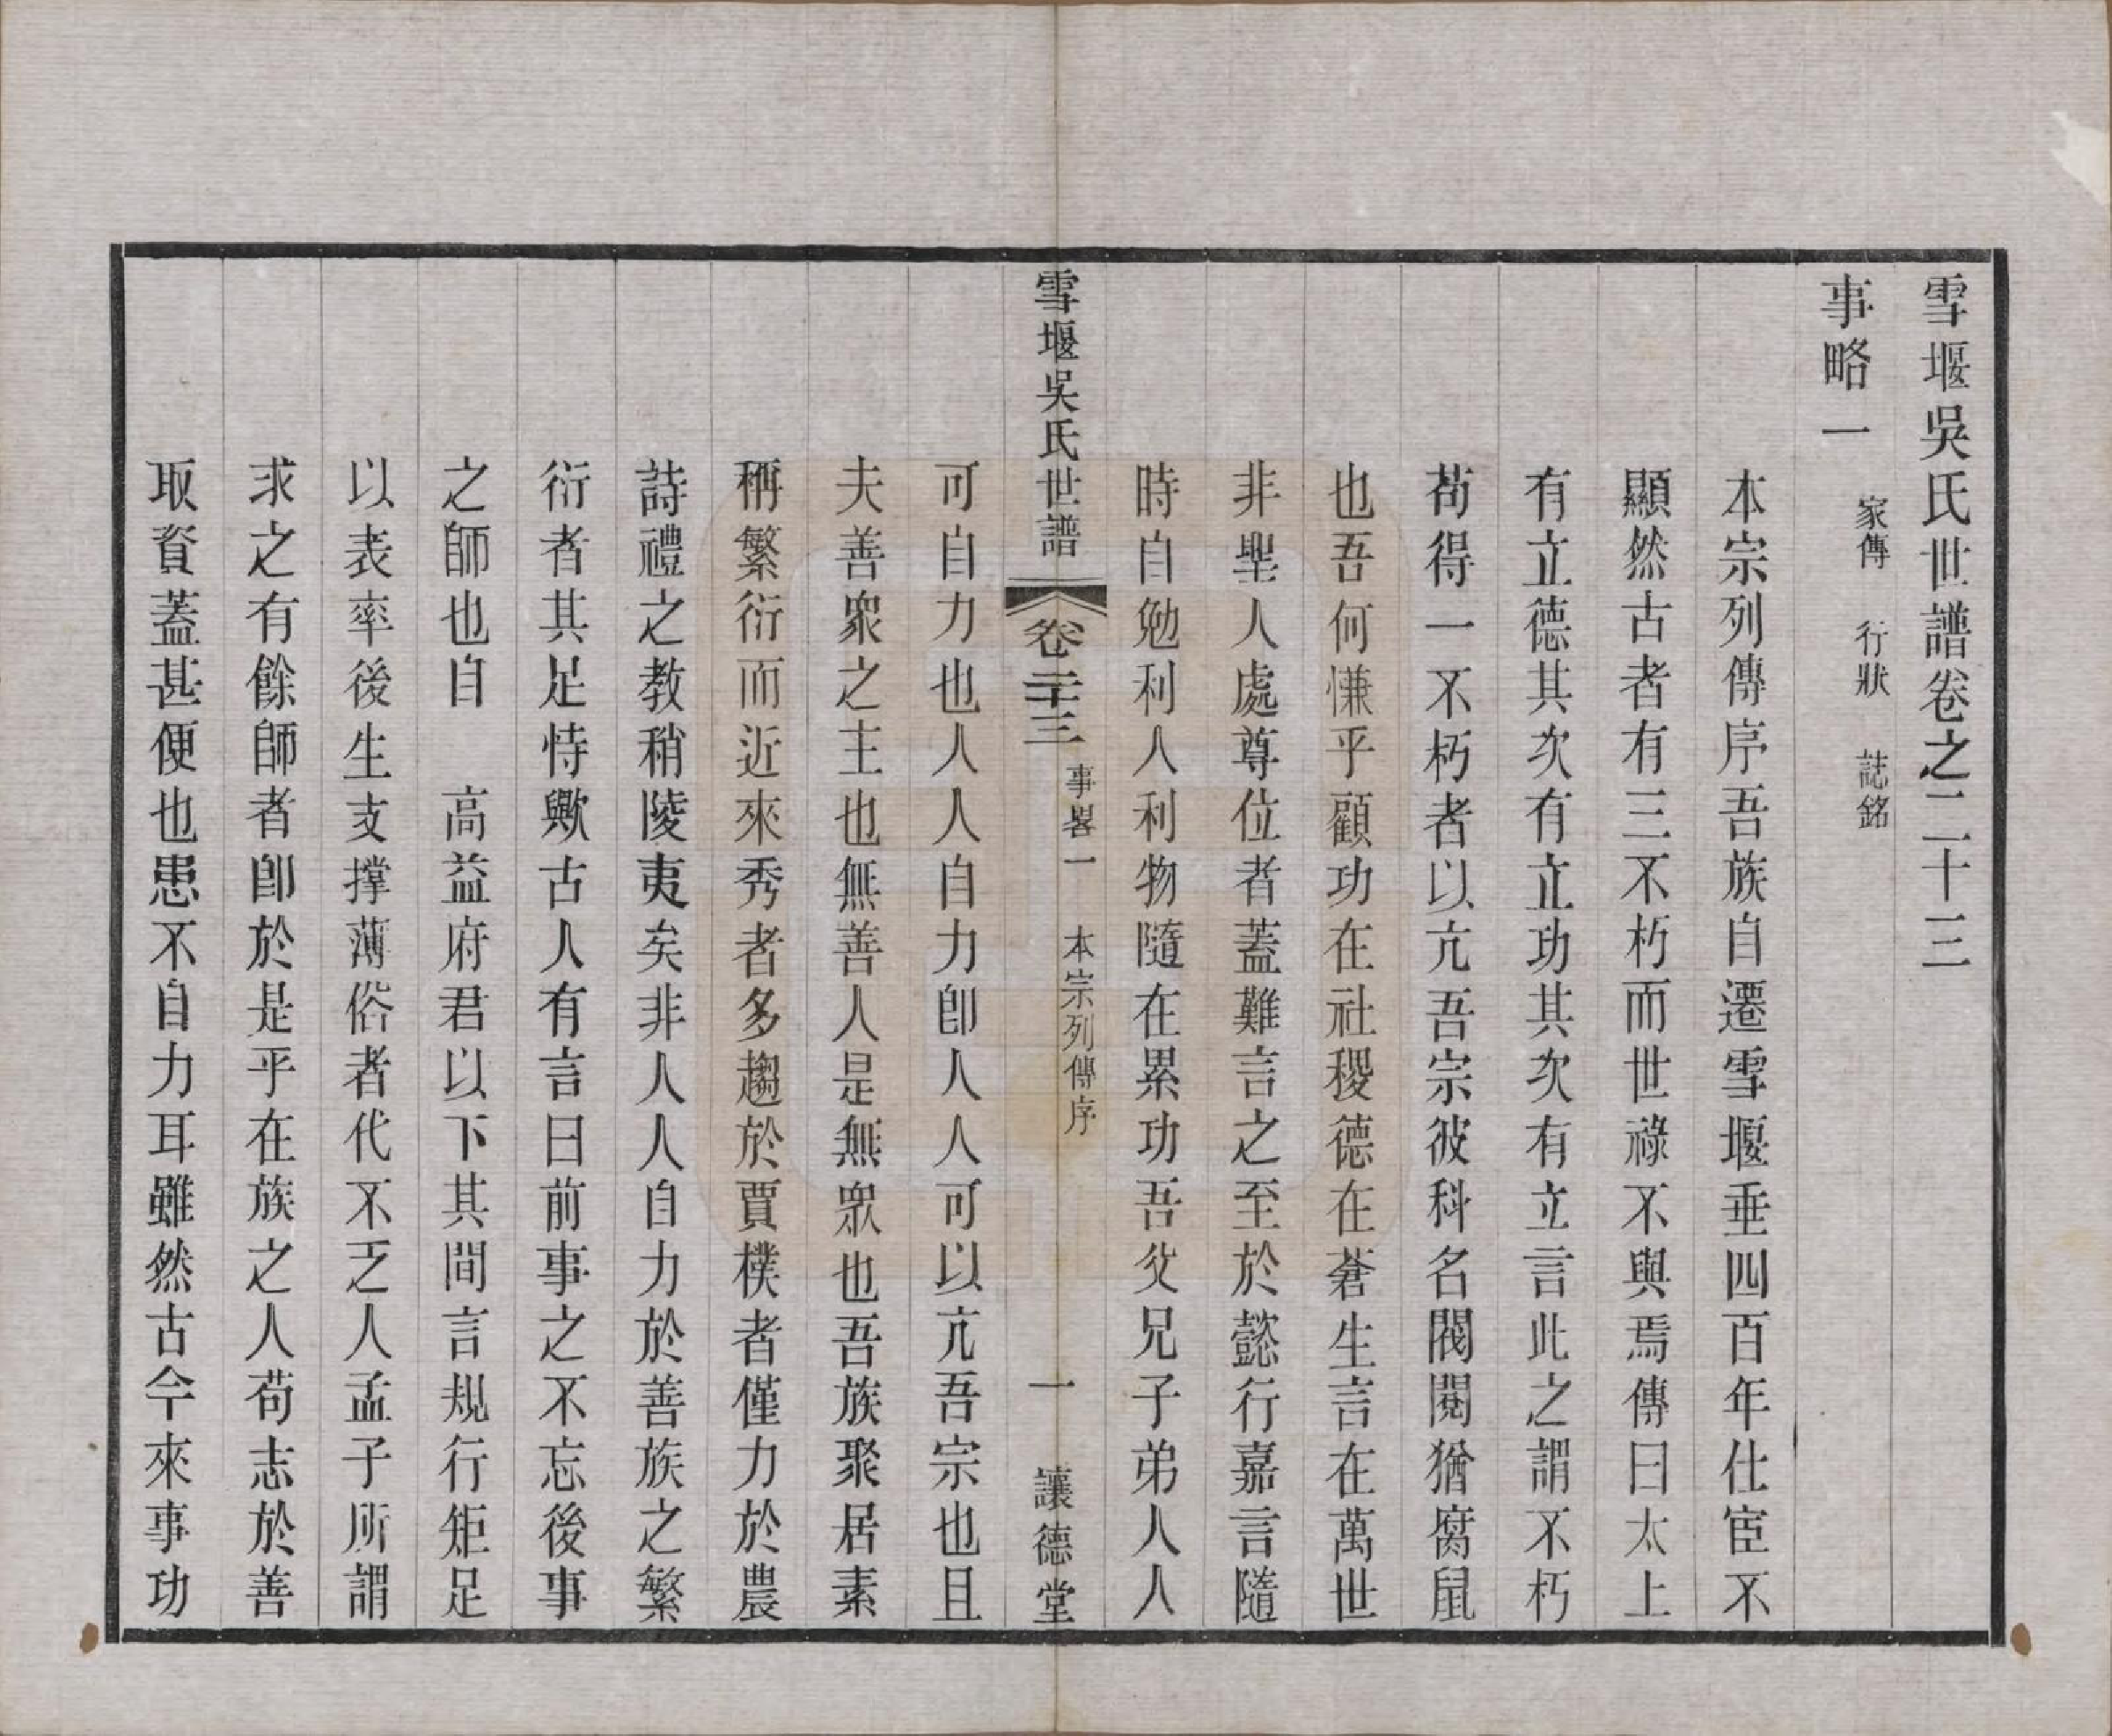 雪堰吳氏世譜卷之二十三
事略一　家傳　行狀　誌銘
本宗列傳序吾族自遷雪堰垂四百年仕宦不
顯然古者有三不朽而世祿不與焉傳曰太上
有立德其次有立功其次有立言此之謂不朽
苟得一不朽者以亢吾宗彼科名閥閱猶腐鼠
也吾何慊乎顧功在社稷德在蒼生言在萬世
非聖人處尊位者蓋難言之至於懿行嘉言隨
時自勉利人利物隨在累功吾父兄子弟人人
雪堰吳氏世譜　卷二十三　事畧一　本宗列傳序　一　讓德堂
可自力也人人自力卽人人可以亢吾宗也且
夫善衆之主也無善人是無衆也吾族聚居素
稱繁衍而近來秀者多趨於賈樸者僅力於農
詩禮之教稍陵夷矣非人人自力於善族之繁
衍者其足恃歟古人有言曰前事之不忘後事
之師也自　高益府君以下其間言規行矩足
以表率後生支撐薄俗者代不乏人孟子所謂
求之有餘師者卽於是乎在族之人苟志於善
取資蓋甚便也患不自力耳雖然古今來事功